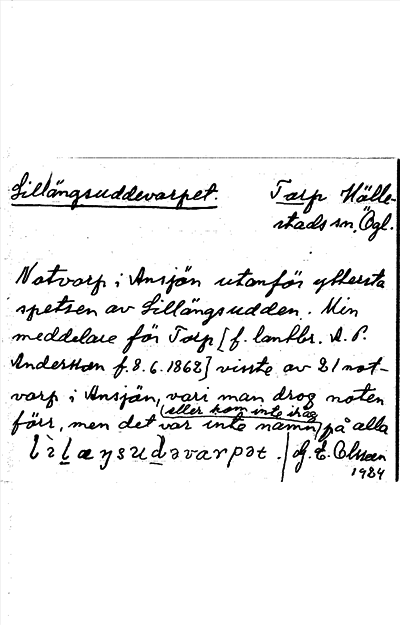 Lillängsuddevarpet. Torp Hälle-
stads sn, Ögl.
Notvarp i Ansjön utanför yttersta
spetsen av Lillängsudden. Min
meddelare för Torp [f. lantbr. A. P.
Andersson f. 8. 6. 1862] visste av 21 not-
varp i Ansjön, vari man drog noten
(eller kom inte ihåg
förr, men det var inte namn) på alla
lìlæŋsudəvarpət. G. E. Olsson
1924